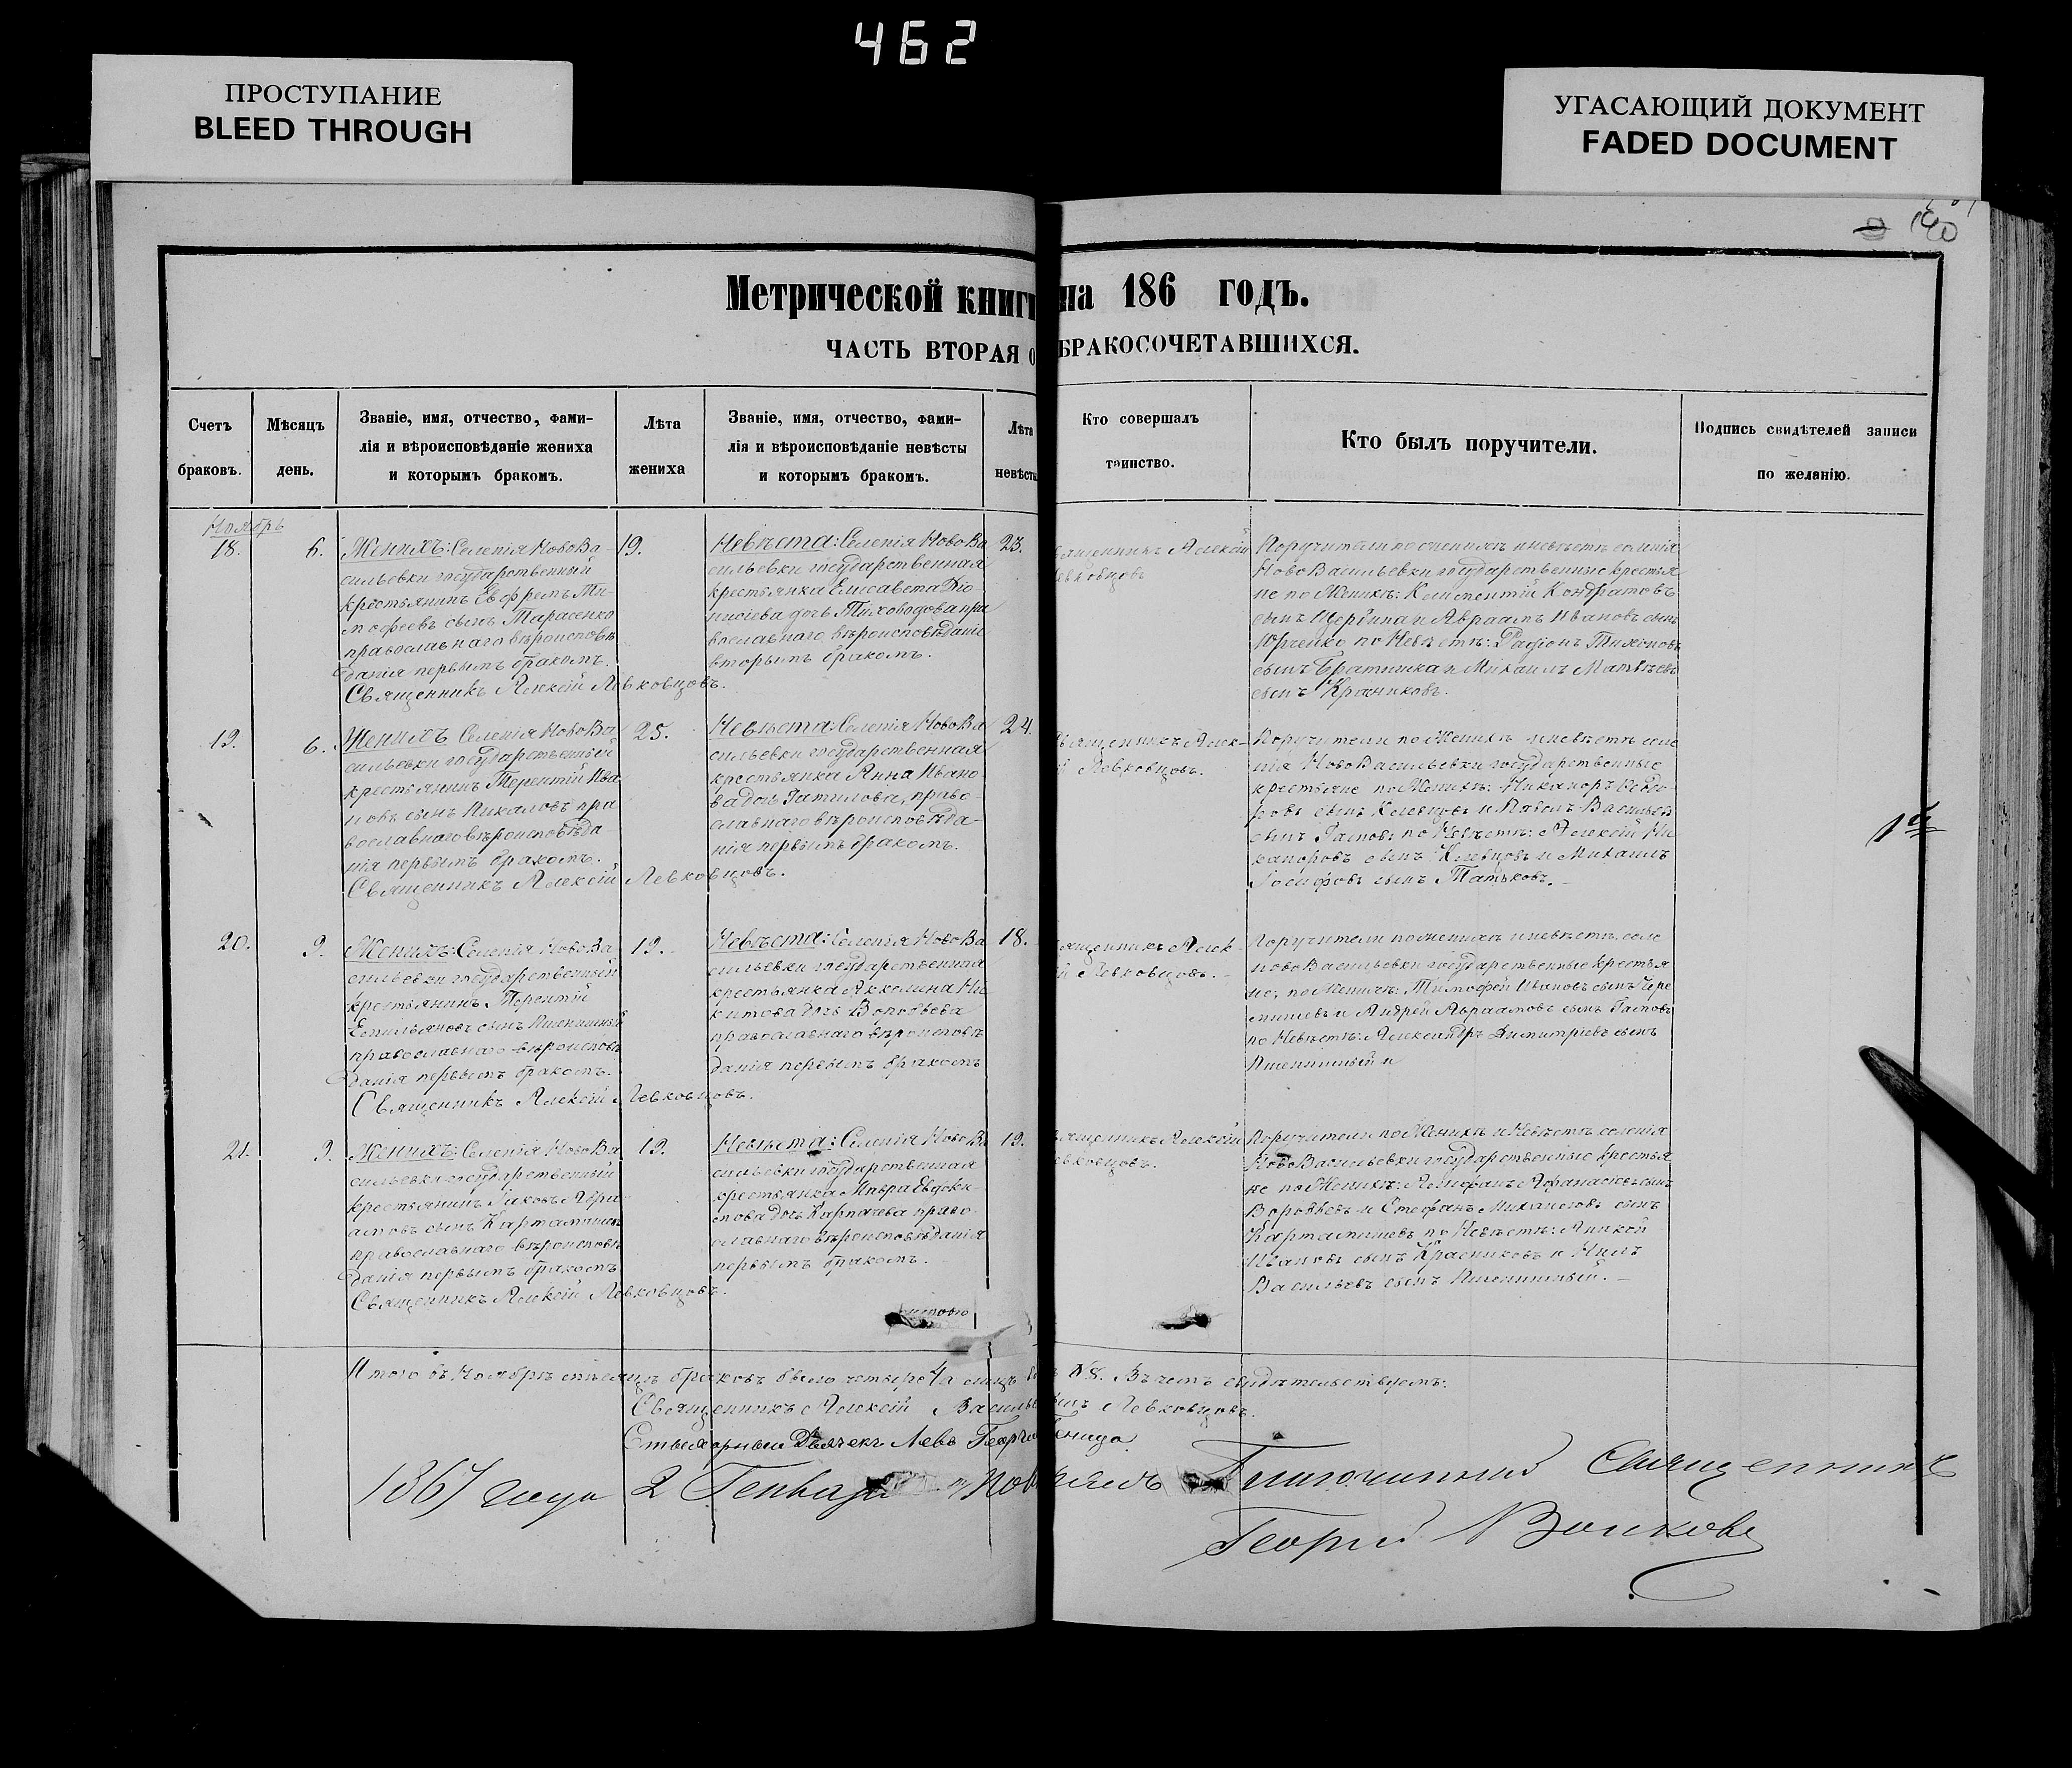 462
ПРОСТУПАНИЕ
BLEED THROUGH
УГАСАЮЩИЙ ДОКУМЕНТ
FADED DOCUMENT
190
Метрической книги на 186 годъ.
ЧАСТЬ ВТОРАЯ о БРАКОСОЧЕТАВШИХСЯ.
Счетъ браковъ.
Мѣсяцъ день.
Званіе, имя, отчество, фами-
лія и вѣроисповѣданіе жениха
и которымъ бракомъ.
Лѣта жениха
Званіе, имя, отчество, фами-
лія и вѣроисповѣданіе невѣсты
и которымъ бракомъ.
Лѣта невѣсты
Кто совершалъ
таинство.
Кто былъ поручители.
Подпись свидѣтелей записи
по желанію.
Ноябрь
18.
6.
Женихъ: Селенія НовоВа-
сильевки государственный
крестьянинъ Евфремъ Ти-
мофеевъ сынъ Тарасенко
православнаго вѣроисповѣ
данія первымъ бракомъ.
Священникъ Алексій Левковцовъ.
19.
Невѣста: Селенія НовоВа
сильевки государственная
крестьянка Елисавета Діо-
нисіева дочь пра
вославнаго вѣроисповѣданія
вторымъ бракомъ.
23.
Священникъ Алексій
Левковцовъ
Поручители по женихѣ и невѣстѣ селенія
НовоВасильевки государственные крестья
не по Женихѣ: Климентій Кондратовъ
сынъ Щербина и Авраамъ Ивановъ сынъ
Юрченко по Невѣстѣ: Тихоновъ
сынъ и Михаилъ Матвѣевъ
сынъ
19.
6.
Женихъ Селенія НовоВа
сильевки государственный
крестьянинъ Терентій Ива
новъ сынъ пра
вославнаго вѣроисповѣда
нія первымъ бракомъ.
Священникъ Алексій Левковцовъ.
25.
Невѣста: Селенія НовоВа
сильевки государственная
крестьянка Анна Ивано
ва дочь право-
славнаго вѣроисповѣда-
нія первымъ бракомъ.
24.
Священникъ Алек-
й Левковцовъ.
Поручители по Женихѣ и невѣстѣ селе
нія НовоВасильевки государственные
крестьяне по Женихѣ: Никаноръ Федо-
ровъ сынъ и Павелъ Васильевъ
сынъ по Невѣстѣ: Алексій Ни
каноровъ сынъ и Михаилъ
Іосифовъ сынъ
20.
9.
Женихъ: Селенія НовоВа
сильевки государственный
крестьянинъ Терентій
Емильяновъ сынъ Пшенишный
православнаго вѣроисповѣ
данія первымъ бракомъ.
Священникъ Алексій Левковцовъ.
19.
Невѣста: Селенія НовоВа
сильевки государственная
крестьянка Акилина Ни
китова дочь Воробьева
православнаго вѣроисповѣ
данія первымъ бракомъ
18.
Священникъ Алек-
й Левковцовъ.
Поручители по женихѣ и невѣстѣ селе
НовоВасильевки государственные крестья
не, по Женихѣ: Тимофей Ивановъ сынъ
и Андрей Авраамовъ сынъ
по Невѣстѣ: Александръ Димитріевъ сынъ
Пшенишный и
21.
9.
Женихъ: Селенія НовоВа
сильевки государственный
крестьянинъ Іаковъ Авра
амовъ сынъ Картамышевъ
православнаго вѣроисповѣ
данія первымъ бракомъ
Священникъ Алексій Левковцовъ.
19.
Невѣста: Селенія НовоВа
сильевки государственная
крестьянка Мавра Евдоки-
мова дочь Карпачева право-
славнаго вѣроисповѣданія
первымъ бракомъ.
19.
Священникъ Алексій
Левковцовъ.
Поручители по Женихѣ и Невѣстѣ селенія
НовоВасильевки государственные крестья
не по Женихѣ: Афанасіевъ сынъ
Воробьевъ и Стефанъ Михаиловъ сынъ
Картамышевъ по Невѣстѣ:
Ивановъ сынъ Красниковъ и Нилъ
Васильевъ сынъ Пшенишный.
Итого въ Ноябрѣ мѣсяцѣ браковъ было четыре 4 лицъ 8. Въ чемъ свидѣтельствуемъ:
Священникъ Алексій Васильевичъ Левковцовъ.
Левъ
1867 года 2 Генваря повѣрялъ Благочинный Священникъ
Георгій Волковъ